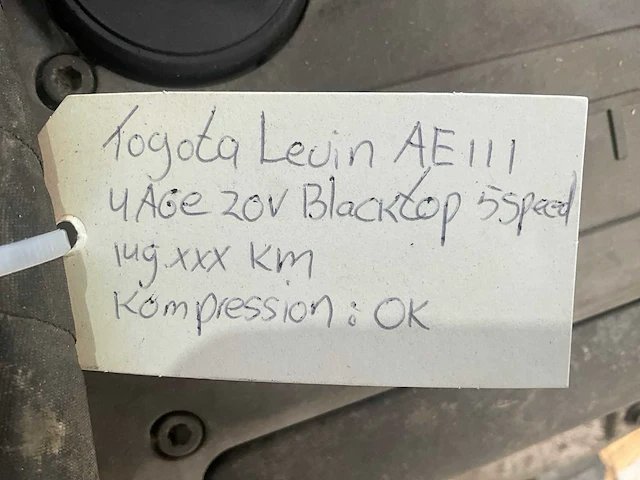 Toyota Levin AE111
4AGE 20V Blacktop 5speed
149.xxx km
Kompression: OK